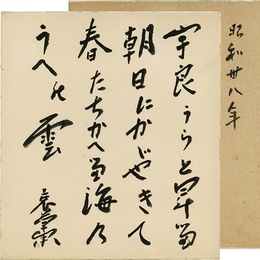 宇良うらと昇る
朝日にかゞやきて
春たちかへる海乃
うへの雲
昭和卅八年